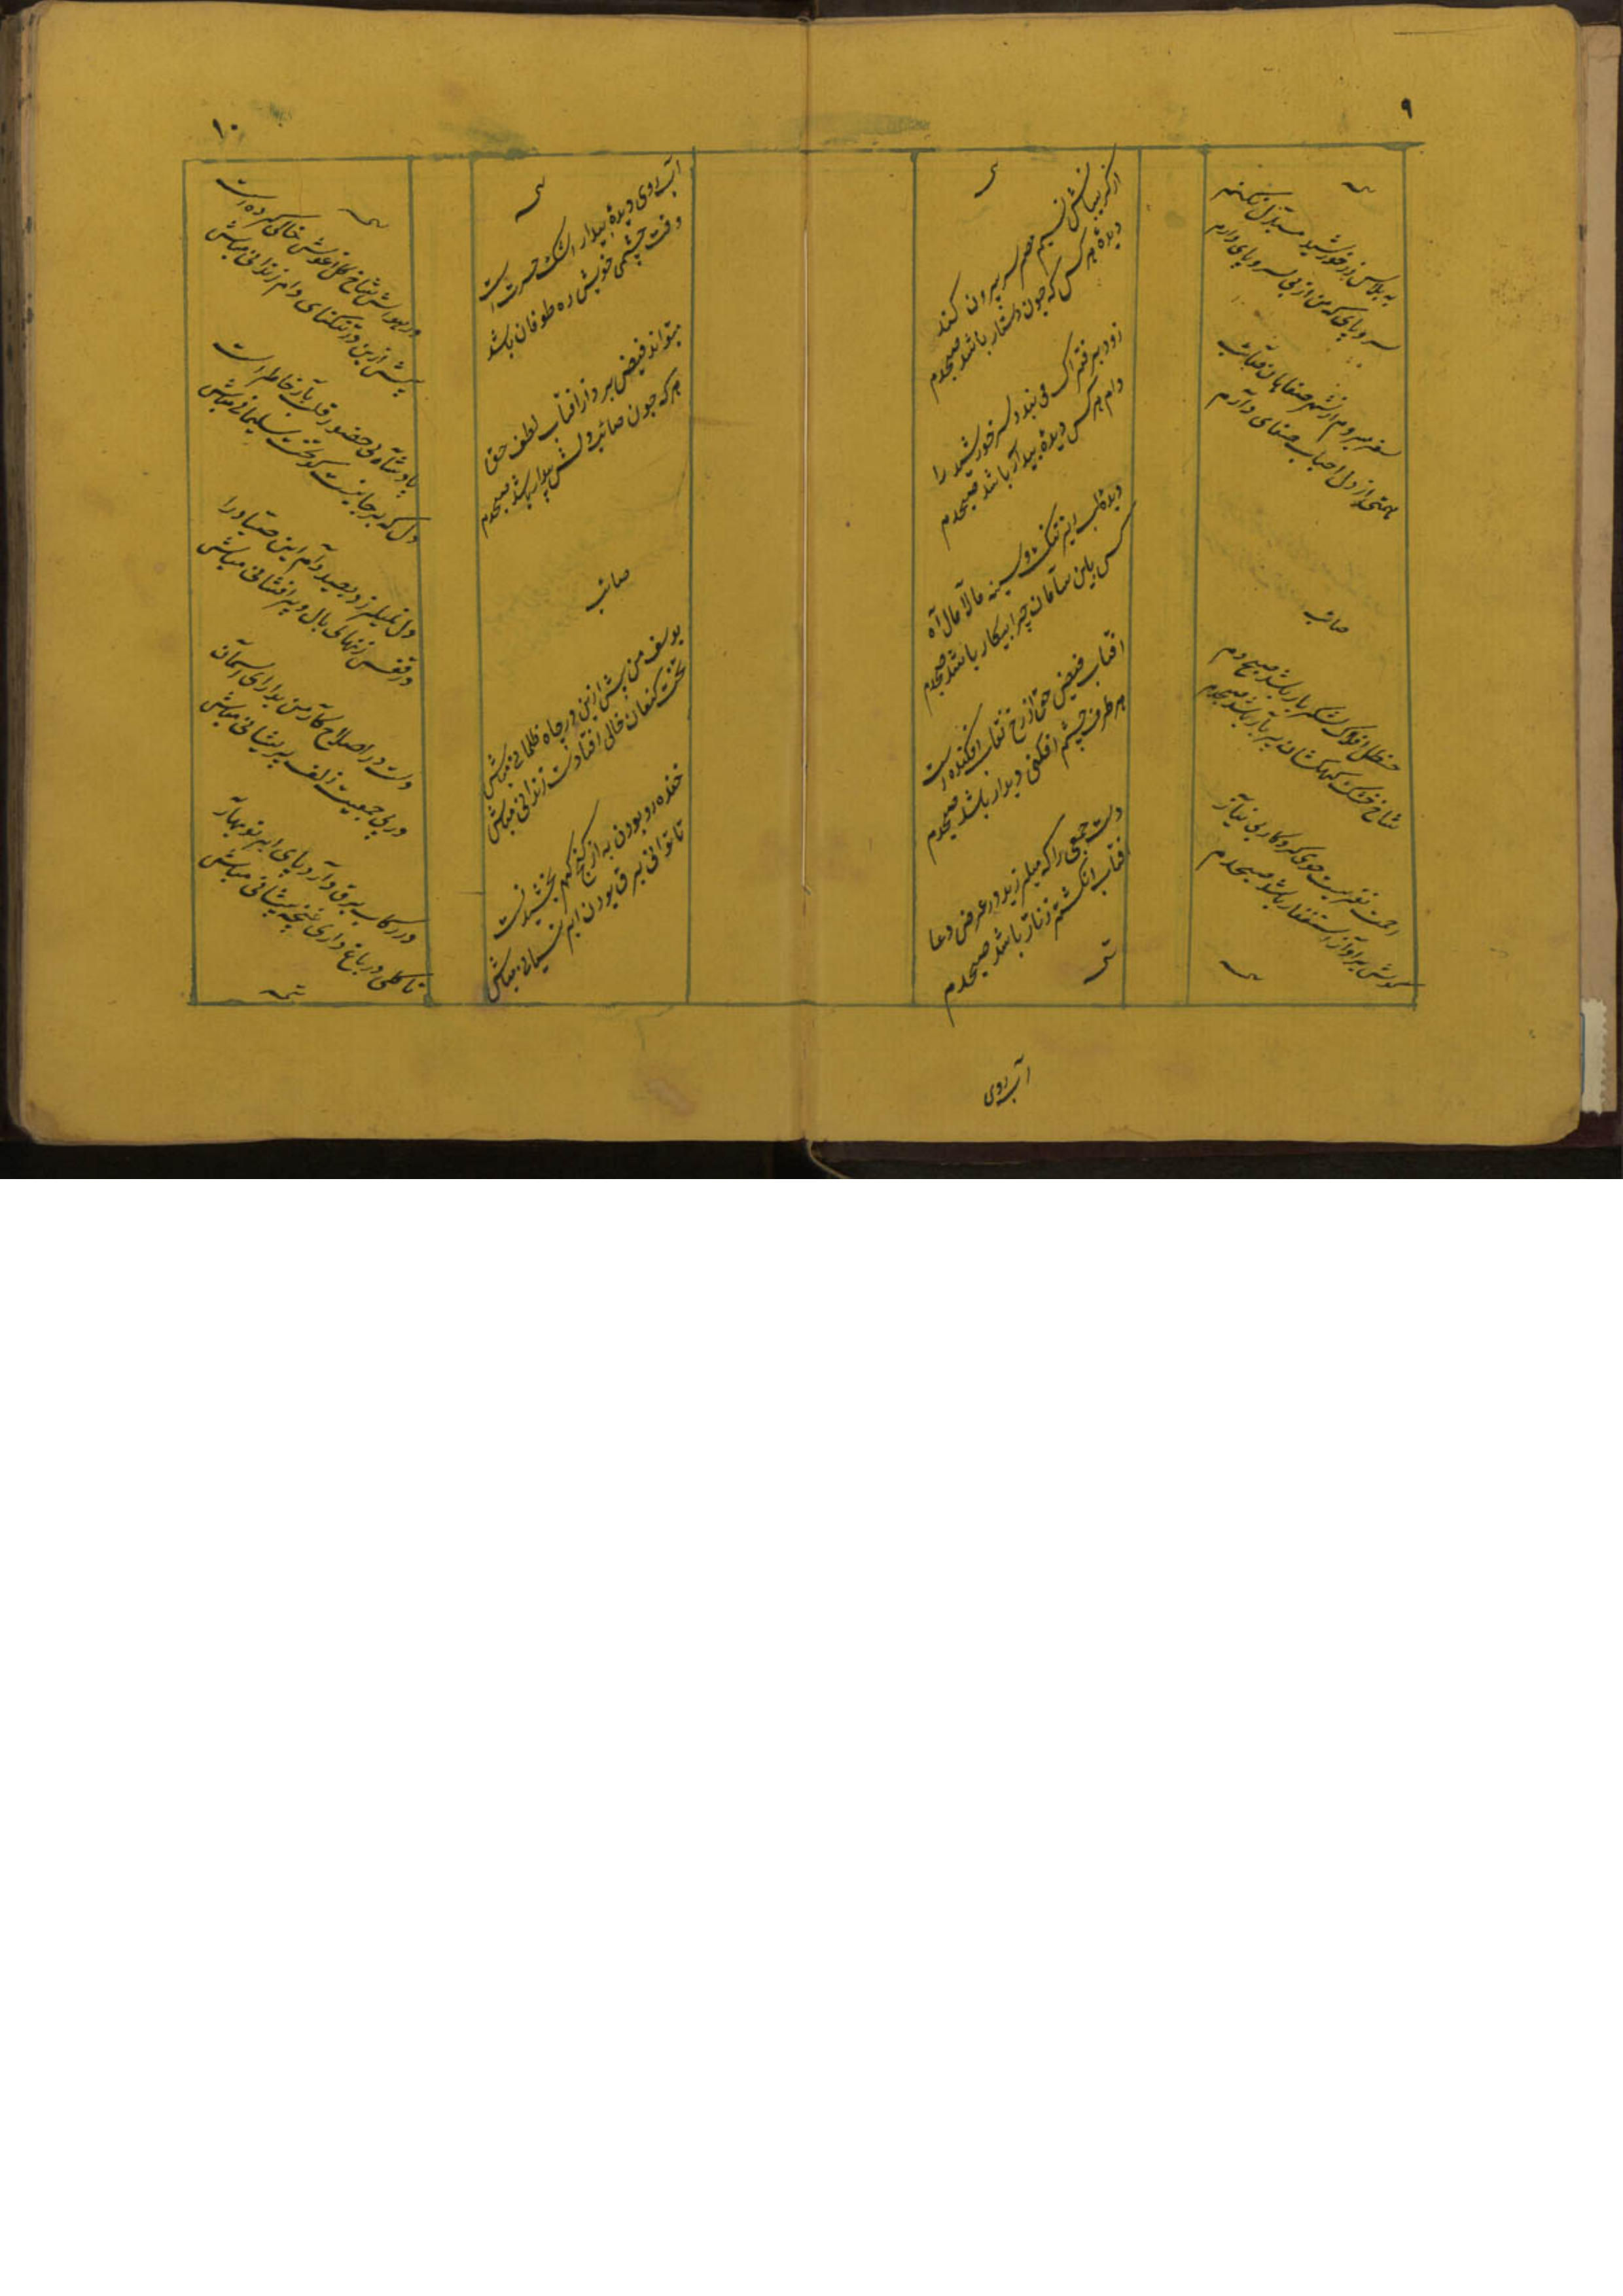 ۹
به پلاس زر خورشید مبتذل نکنم
سر و پای که من از بی سر و پای دارم
سفر میروم از شهر صفاهان صائب
همتی از دل احباب صفای دارم
صائب
حنظل افلاک شکربار باشد صبحدم
شاخ خشک کهکشان پربار باشد صبحدم
نیست حق کردگار بی نیاز
گوش بر آواز استغفار باشد صبحدم
از گریبانش نسیم مصر سر بیرون کند
دیده هر کس که چون دستار باشد صبحدم
زود بر فتراک می بندد سر خورشید را
دام هر کس دیده بیدار باشد صبحدم
دیده لب ریز و سینه مالامال آه
کس باین سامان چرا بیکار باشد صبحدم
افتاب فیض حق از رخ نقاب افکنده است
هر طرف چشم افکنی دیدار باشد صبحدم
دست جمعی را که میلرزید در عرض دعا
افتاب انگشتر زنار باشد صبحدم
آب روی
۱۰
آب روی دیده بیدار اشک حسرت است
وقت چشمی خوش که طوفان باشد
میتواند فیض برد از افتاب لطف حق
هر که چون صائب دلش بیدار باشد صبحدم
صائب
یوسف من بیش ازین در چاه ظلمانی مباش
تخت کنعان خالی افتادست زندانی مباش
خنده رو بودن به از گنج گهر بخشیدنست
تا توانی برق بودن ابر نیسانی مباش
در هوایش شاخ گل آغوش خالی کرده است
بیش ازین در تنگنای دام زندانی مباش
پادشاه بی حضور قلب بار خاطر است
دل که بر جا نیست گو تخت سلیمانی مباش
دل نمیلرزد بصید دام این صیاد را
در قفس زنهار بی بال و پر افشانی مباش
دست در اصلاح کار من بدار ای آسمان
در پی جمعیت زلف پریشانی مباش
در رکاب برق دارد پای ابر نوبهار
تا گلی در باغ داری غنچه پیشانی مباش